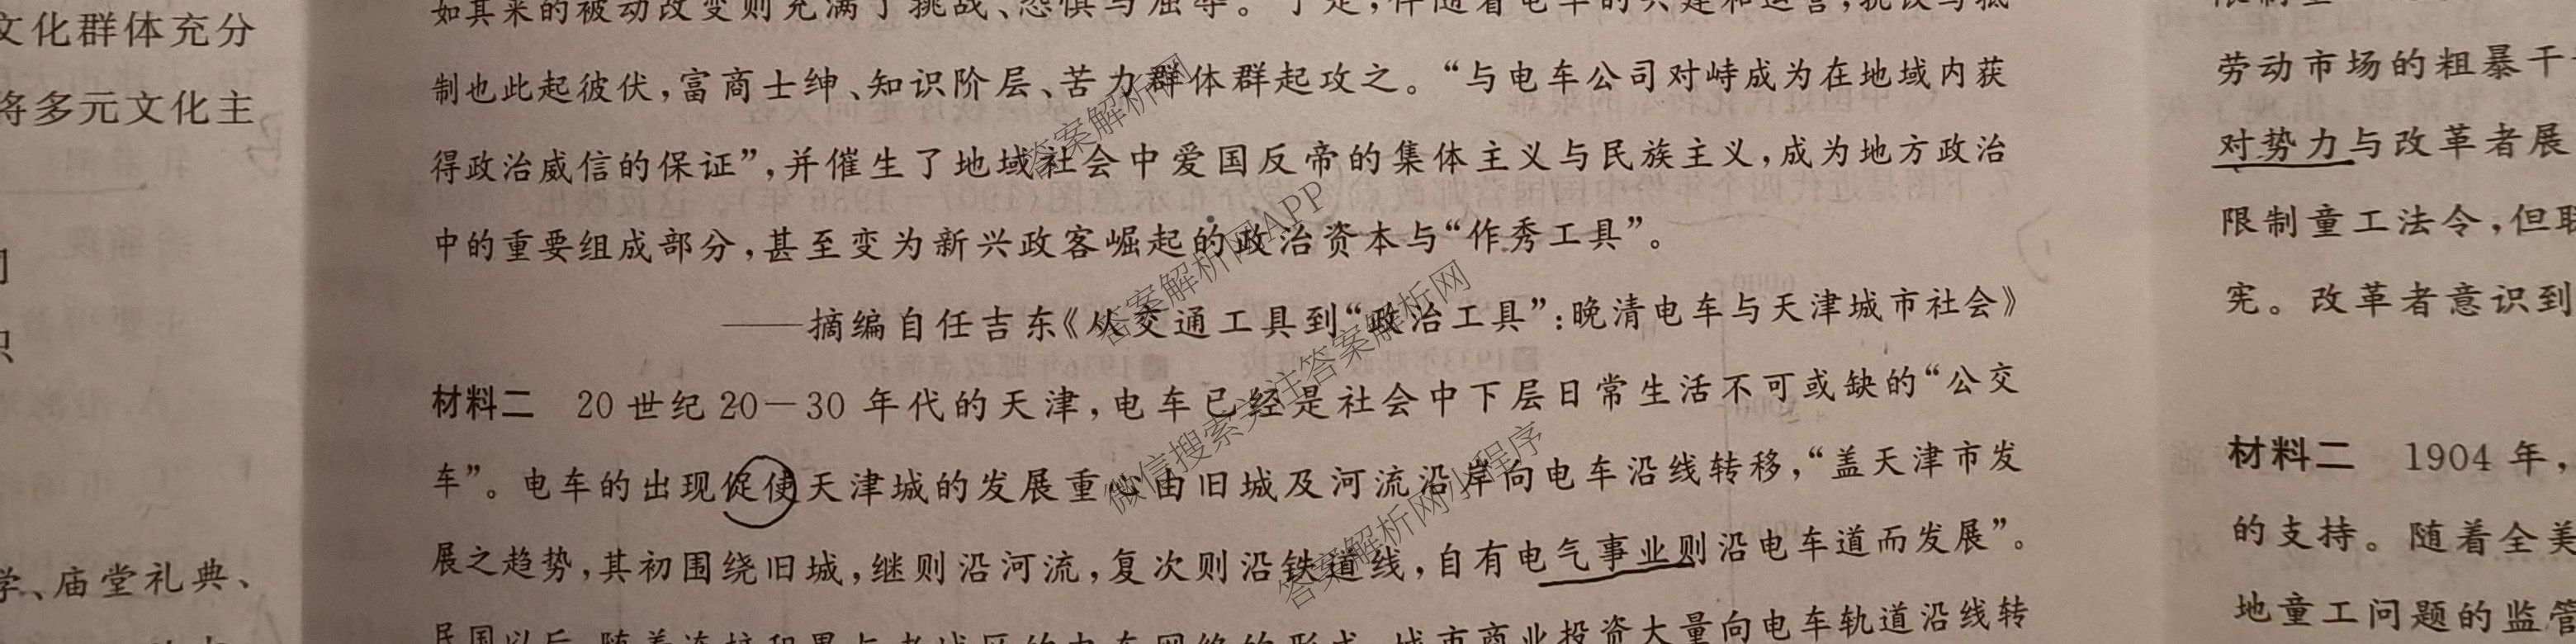 文化群体充分
将多元文化主
学、庙堂礼典、
制也此起彼伏,富商士绅、知识阶层、苦力群体群起攻之。“与电车公司对峙成为在地域内获
得政治威信的保证”,并催生了地域社会中爱国反帝的集体主义与民族主义,成为地方政治
中的重要组成部分,甚至变为新兴政客崛起的政治资本与“作秀工具”。
——摘编自任吉东《从交通工具到“政治工具”:晚清电车与天津城市社会》
材料二 20世纪20—30年代的天津,电车已经是社会中下层日常生活不可或缺的“公交
车”。电车的出现促使天津城的发展重心由旧城及河流沿岸向电车沿线转移,“盖天津市发
展之趋势,其初围绕旧城,继则沿河流,复次则沿铁道线,自有电气事业则沿电车道而发展”。
劳动市场的粗暴干
对势力与改革者展
限制童工法令,但联
宪。改革者意识到
材料二 1904年,
的支持。随着全美
地童工问题的监管
答案解析网
答案解析网APP
微信搜索关注答案解析网
答案解析网小程序